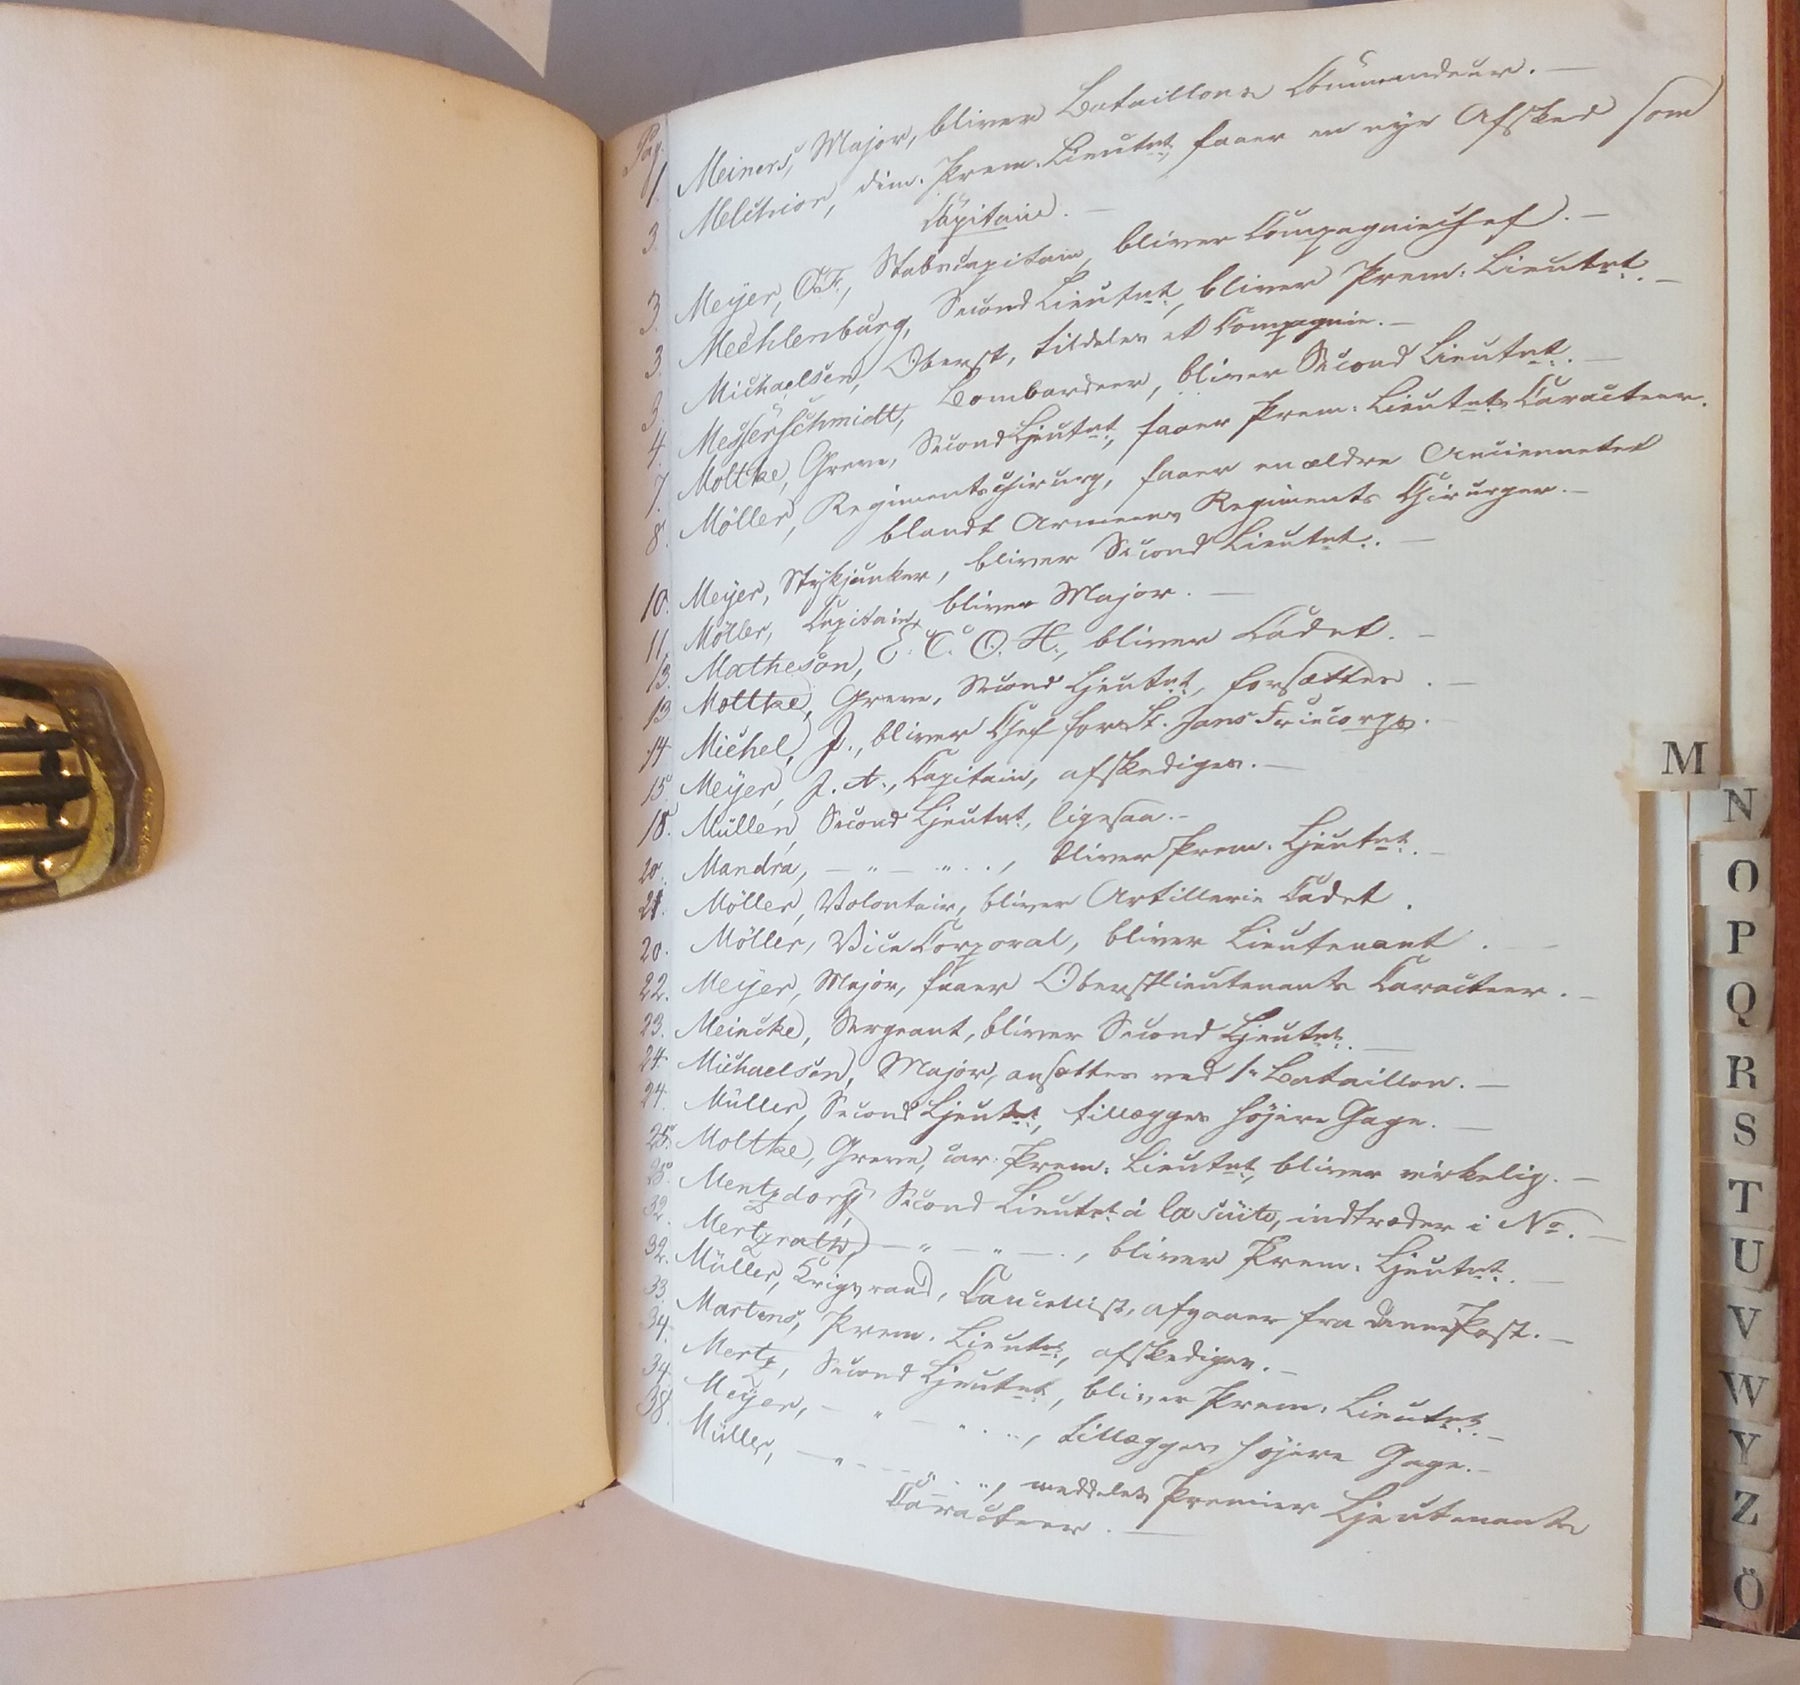 Pag.
1. Meiners, Major, bliver Bataillons Commandeur. —
3. Melchior, dim. Prem. Lieutnt, faaer en nye Afsked som
Capitain. —
3. Meyer, O.F., Stabscapitain, bliver Compagniechef. —
3. Mechlenburg, Second Lieutnt, bliver Prem: Lieutnt. —
3. Michaelsen, Oberst, tildeles et Compagnie. —
4. Messerschmidt, Bombardeer, bliver Second Lieutnt. —
7. Moltke, Greve, Second Ljeutnt, faaer Prem: Lieutnts Caracteer.
8. Möller, Regimentschirurg, faaer en ældre Anciennetet
blandt Armeens Regiments Chirurger. —
10. Meyer, Stykjunker, bliver Second Lieutnt. —
11. Möller, Capitain, bliver Major. —
13. Matheson, E. C. O. H., bliver Cadet. —
13 Moltke, Greve, Second Ljeutnt, forsættes. —
14 Michel, J., bliver Chef for St. Jans Friecorps. —
15 Meyer, J. A., Capitain, afskediges. —
18. Müllen, Second Ljeutnt, ligesaa. —
20. Mandra, — " — " . . , bliver Prem. Ljeutnt. —
21. Möller, Volontair, bliver Artillerie Cadet.
20. Möller, Vice Corporal, bliver Lieutenant. —
22. Meyer, Major, faaer Oberstlieutenants Caracteer. —
23. Meincke, Sergeant, bliver Second Ljeutnt. —
24. Michaelsen, Major, ansættes ved 1e Bataillon. —
24. Müller, Second Ljeutnt, tillægges höjere Gage. —
25. Moltke, Greve, car. Prem: Lieutnt, bliver virkelig. —
25. Mentzdorff, Second Lieutnt à la suite, indtræder i No. —
32. Mertzrath, — " — " — . , bliver Prem: Ljeutnt. —
32. Müller, Krigsraad, Cancellist, afgaaer fra denne Post. —
33. Martens, Prem. Lieutnt, afskediges. —
34. Mertz, Second Ljeutnt, bliver Prem: Lieutnt. —
34. Meyer, — " — " . . , tillægges höjere Gage. —
38. Müller, — " — " . . , meddeles Premier Ljeutenants
Caracteer. —
M
N
O
P
Q
R
S
T
U
V
W
Y
Z
Ö